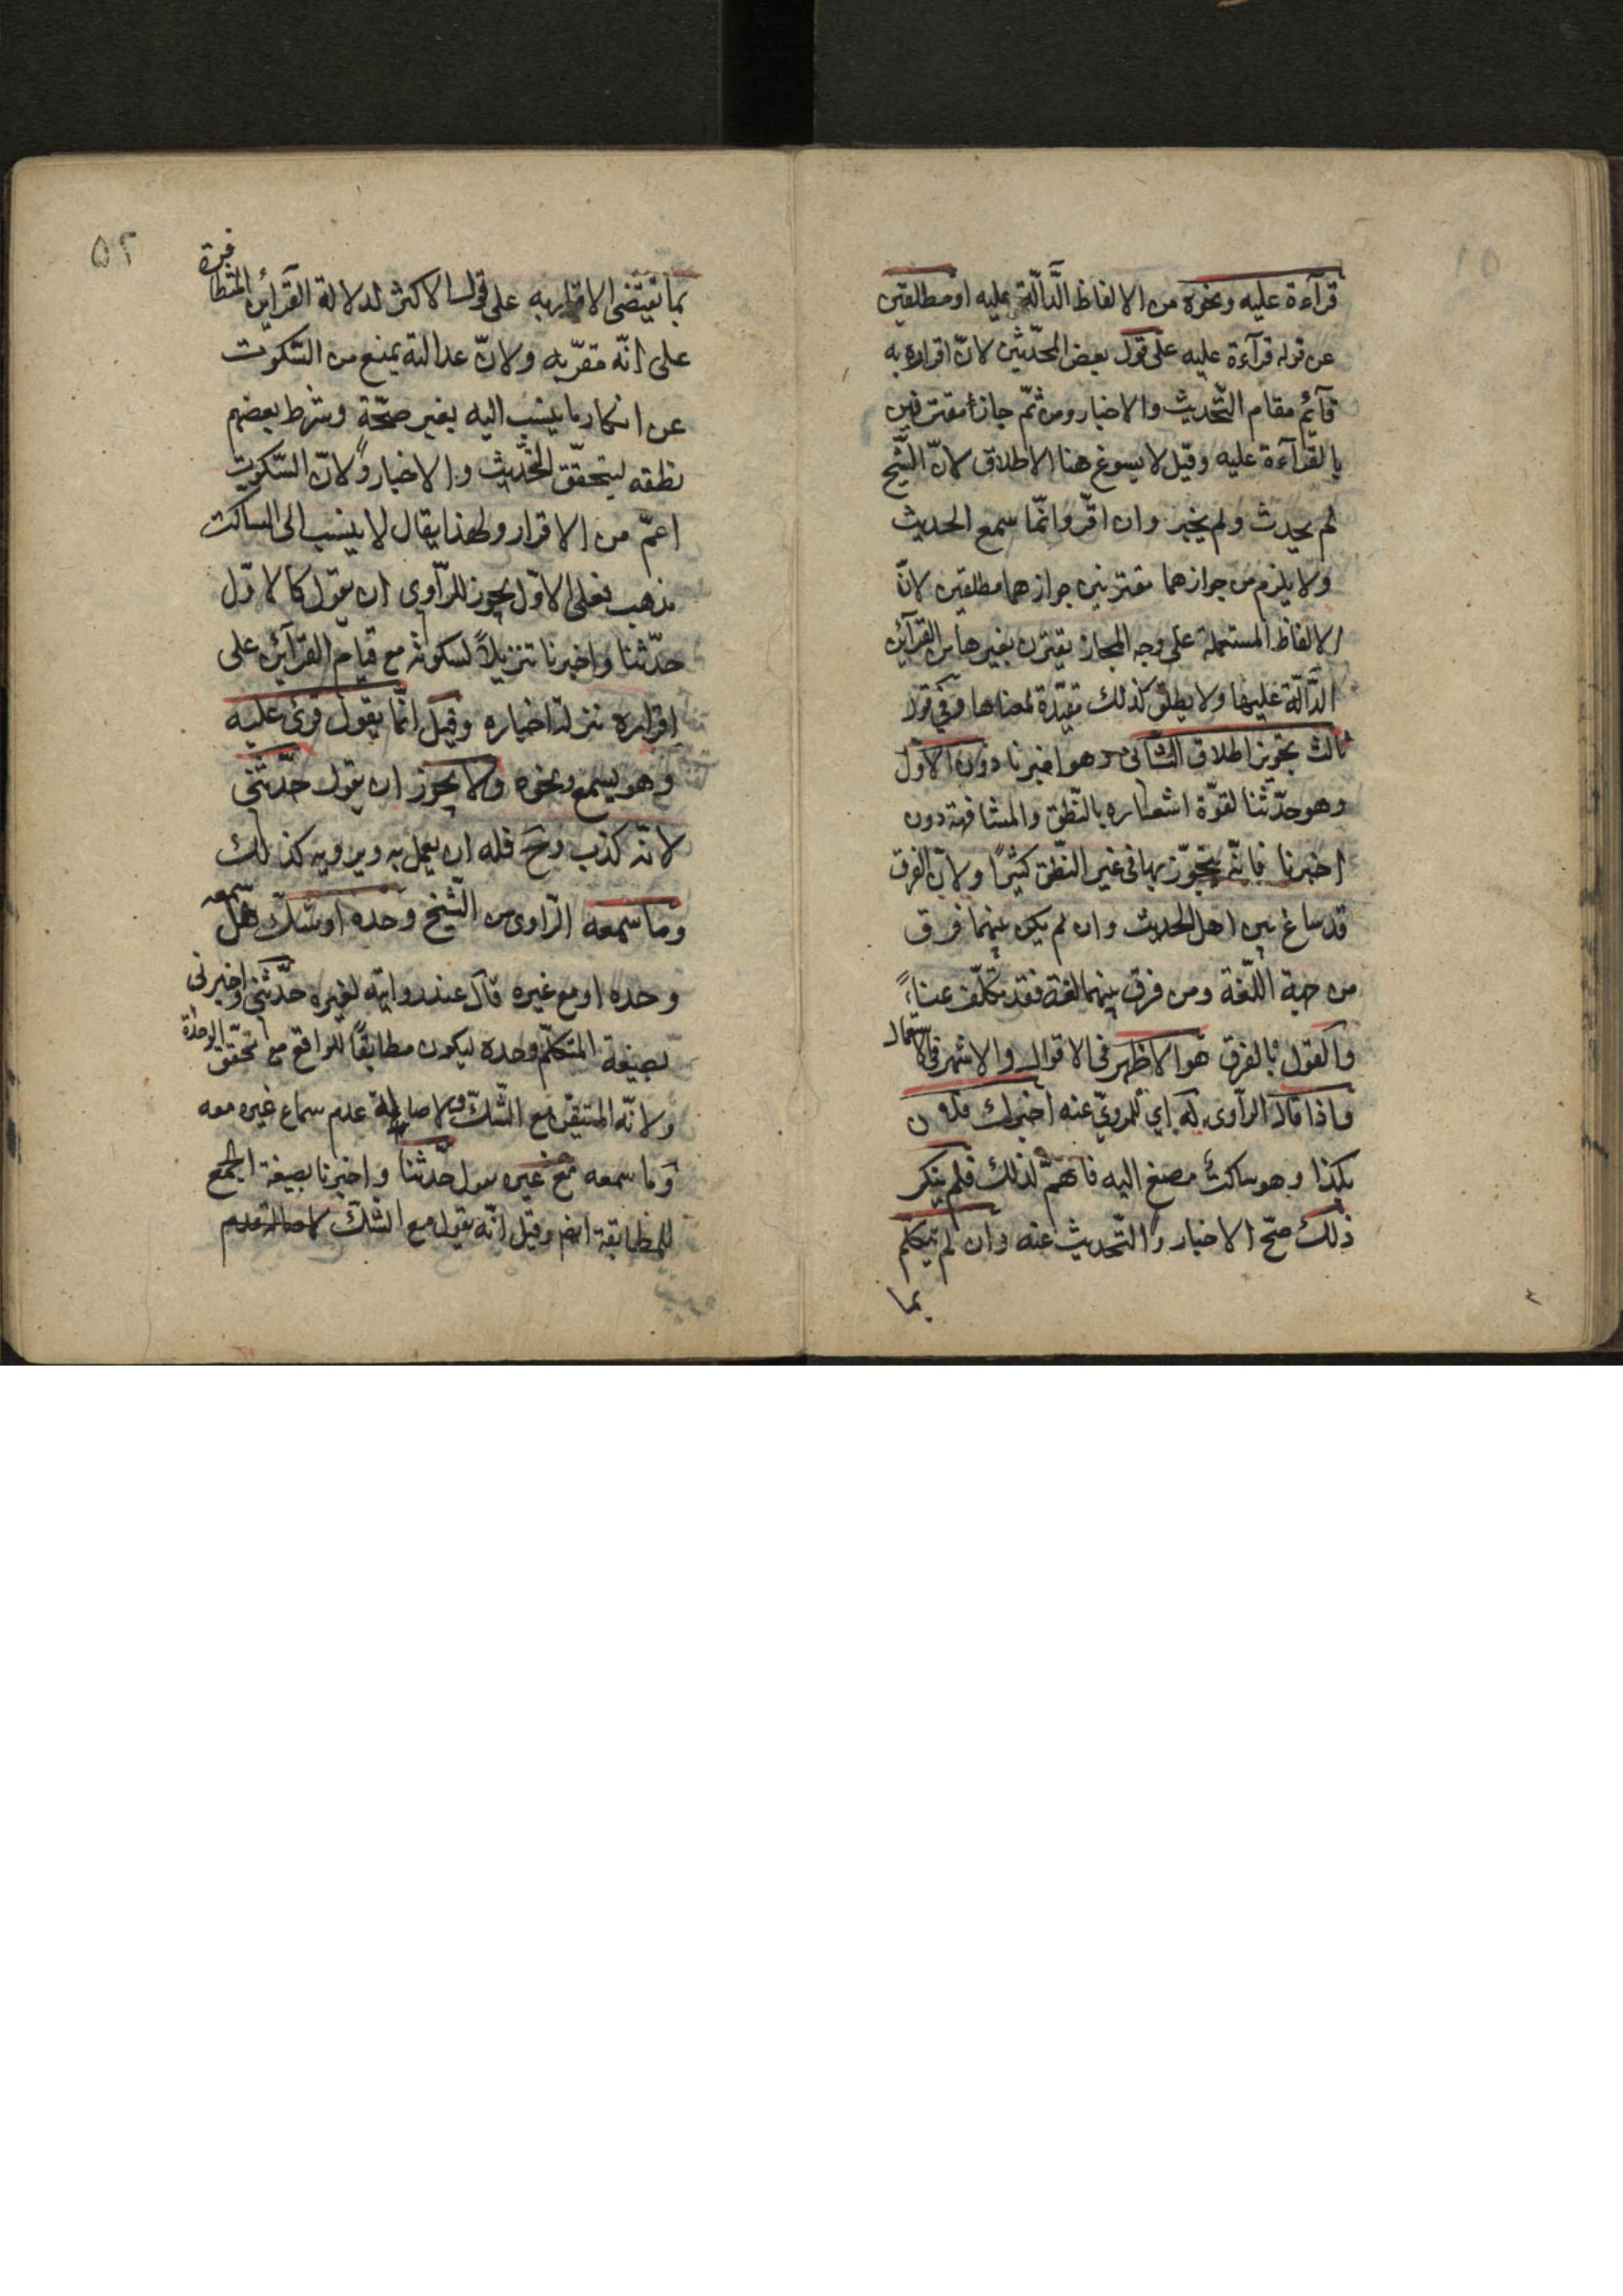 قرآءة عليه ونحوه من الالفاظ الدّآلّة عليه او مطلقين
عن قوله قرآءة عليه على قول بعض المحدّثين لانّ اقراره به
قآئم مقام التّحديث والاخبار ومن ثمّ جازا مقترنين
بالقرآءة عليه وقيل لا يسوغ هنا الاطلاق لانّ الشّيخ
لم يحدث ولم يخبر وان اقرّ وانّما سمع الحديث
ولا يلزم من جوازهما مقترنين جوازهما مطلقين لانّ
الالفاظ المستعملة على وجه المجاز يقترن بغيرها من القرآئن
الدّآلّة عليها ولا يطلق كذلك مقيّدة لمعناها وفي قول
ثالث بتجويز اطلاق الثّاني وهو اخبرنا دون الاوّل
وهو حدّثنا لقوّة اشعاره بالنّطق والمشافهة دون
اخبرنا فانّه يتجوّز بها في غير النّطق كثيرًا ولانّ الفرق
قد ساغ بين اهل الحديث وان لم يكن بينهما فرق
من جهة اللّغة ومن فرق بينهما لغة فقد تكلّف عناءً
والقول بالفرق هو الاظهر في الاقوال والاشهر في الاستعمال
واذا قال الرّاوى له اي للمرويّ عنه اخبرك فلان
بكذا وهو ساكت مصغ اليه فاهم لذلك فلم ينكر
ذلك صحّ الاخبار والتّحديث عنه وان لم يتكلم
بما
۵۲
بما تقتضى الاقرار به على قول الاكثر لدلالة القرآئن المتظافرة
على انّه مقرّ به ولانّ عدالته يمنع من السّكوت
عن انكار ما ينسب اليه بغير صحّة وشرط بعضهم
نطقه ليتحقّق التّحديث والاخبار ولانّ السّكوت
اعمّ من الاقرار ولهذا يقال لا ينسب الى الساكت
مذهب فعلى الاوّل يجوز للرّاوي ان يقول كالاوّل
حدّثنا واخبرنا تنزيلاً لسكوته مع قيام القرآئن على
اقراره منزلة اخباره وقيل انّما يقول قرئ عليه
وهو يسمع ونحوه ولا يجوز ان يقول حدّثني
لانّه كذب وح فله ان يعمل به ويرويه كذلك
وما سمعه الرّاوى من الشّيخ وحده او شكّ هل سمعه
وحده او مع غيره قال عند روايته لغيره حدّثني واخبرني
بصيغة المتكلّم وحده ليكون مطابقًا للواقع مع تحقّق الوحدة
ولانّه المتيقّن مع الشّكّ ولاصالة عدم سماع غيره معه
وما سمعه مع غيره يقول حدّثنا واخبرنا بصيغة الجمع
للمطابقة ايضم وقيل انّه يقول مع الشّكّ لاصالة عدم